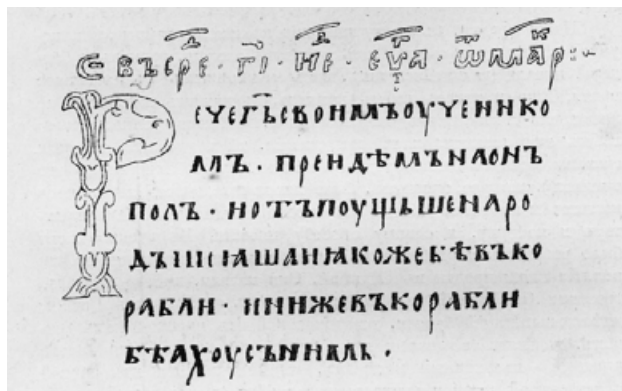 СВЪЕРЕ · г҃і · НЕ · ЕѴⷢ҇А · ѾМАⷬ҇Р :~
Речегь҃своимъоученико
мъ · преидѣмънаонъ
полъ · иотъпоущьшенаро
дъі шѧиꙗкожебѣвъко
рабли · иинижевъкорабли
бѣахоусънимь ·